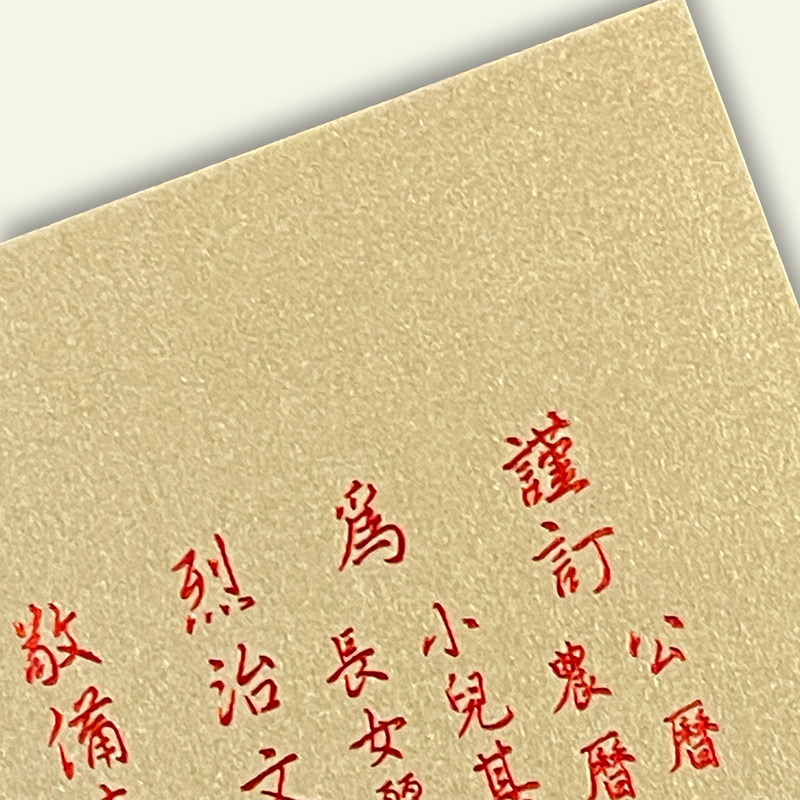 謹訂
公曆
農曆
爲
小兒
長女
烈治文
敬備